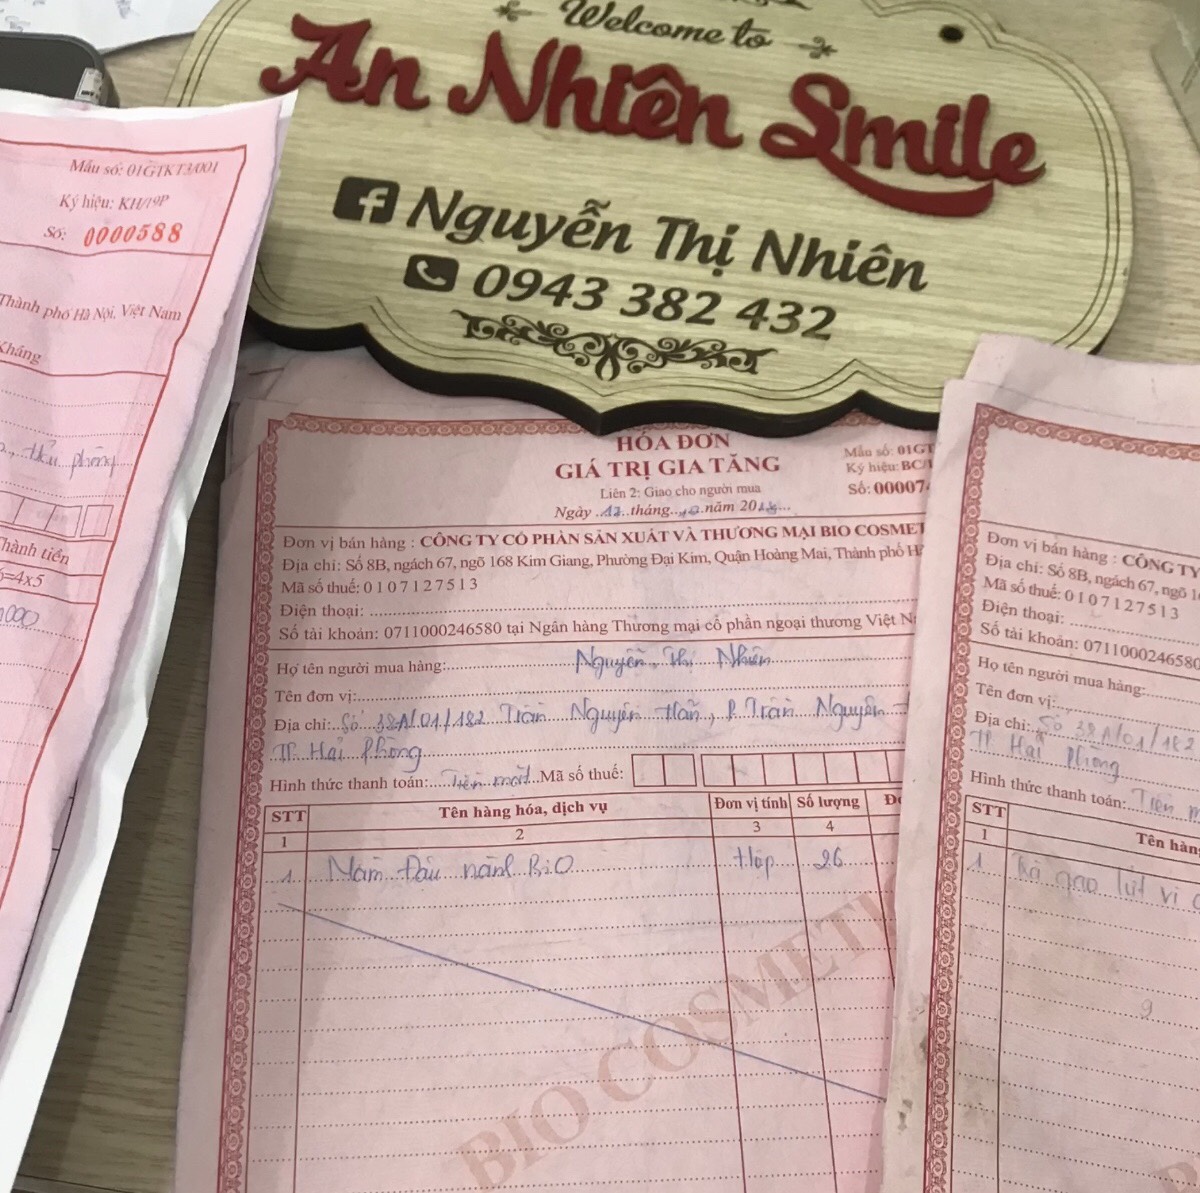 Welcome to
An Nhiên Smile
Nguyễn Thị Nhiên
0943 382 432
Mẫu số: 01GTKT3/001
Ký hiệu: KH/19P
Số: 0000588
Thành phố Hà Nội, Việt Nam
Khang
phòng
Thành tiền
6=4x5
HÓA ĐƠN
GIÁ TRỊ GIA TĂNG
Liên 2: Giao cho người mua
Ngày 17 tháng 10 năm 201
Mẫu số: 01GT
Ký hiệu: BC/1
Số: 000007
Đơn vị bán hàng : CÔNG TY CỔ PHẦN SẢN XUẤT VÀ THƯƠNG MẠI BIO COSMET
Địa chỉ: Số 8B, ngách 67, ngõ 168 Kim Giang, Phường Đại Kim, Quận Hoàng Mai, Thành phố H
Mã số thuế: 0 1 0 7 1 2 7 5 1 3
Điện thoại:
Số tài khoản: 0711000246580 tại Ngân hàng Thương mại cổ phần ngoại thương Việt N
Họ tên người mua hàng: Nguyễn Thị Nhiên
Tên đơn vị:
Địa chỉ: Số 381/01/182 Trần Nguyên Hãn, P. Trần Nguyên
TP. Hải Phòng
Hình thức thanh toán: Tiền mặt Mã số thuế:
STT Tên hàng hóa, dịch vụ Đơn vị tính Số lượng
1 2 3 4
1 Mầm Đậu nành BiO Hộp 26
BIO COSMETI
Đơn vị bán hàng : CÔNG TY
Địa chỉ: Số 8B, ngách 67, ngõ 16
Mã số thuế: 0 1 0 7 1 2 7 5 1 3
Điện thoại:
Số tài khoản: 0711000246580
Họ tên người mua hàng:
Tên đơn vị:
Địa chỉ: Số 381/01/182
TP. Hải Phòng
Hình thức thanh toán: Tiền m
STT Tên hàng
1
1 gạo lứt vị